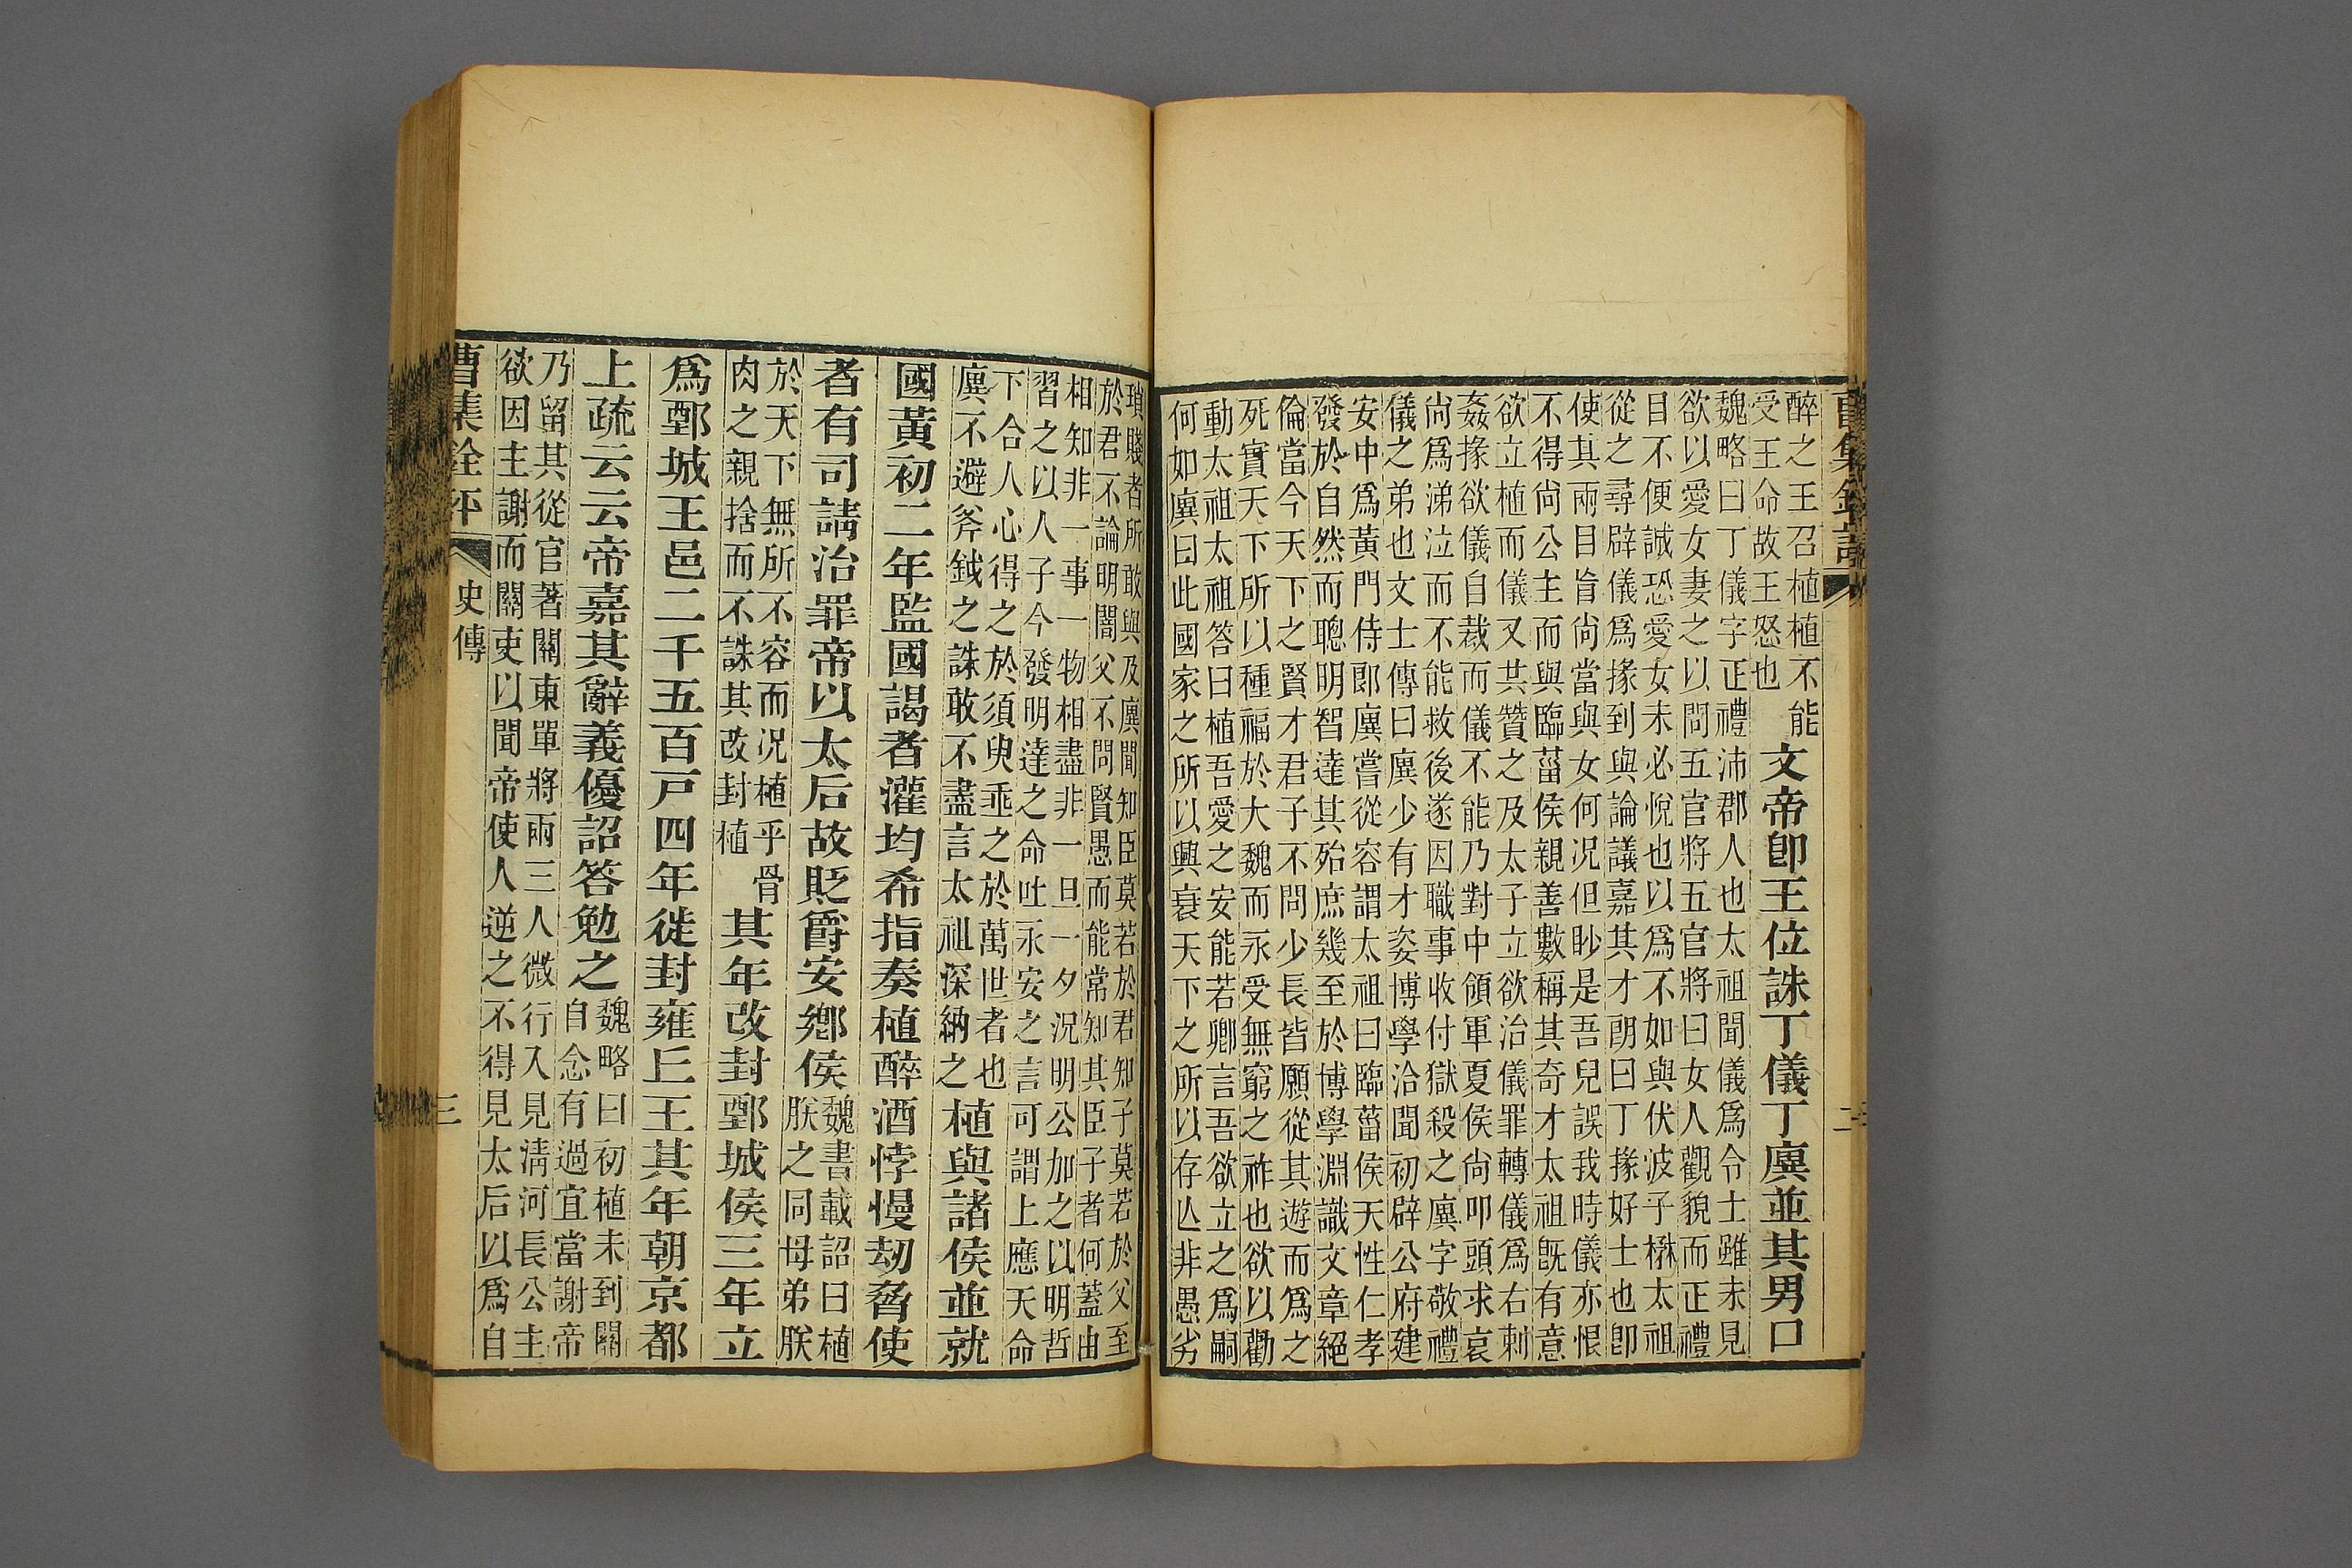 醉之王召植植不能
受王命故王怒也
文帝卽王位誅丁儀丁廙並其男口
魏略曰丁儀字正禮沛郡人也太祖聞儀爲令士雖未見
欲以愛女妻之以問五官將五官將曰女人觀貌而正禮
目不便誠恐愛女未必悅也以爲不如與伏波子楙太祖
從之尋辟儀爲掾到與論議嘉其才朗曰丁掾好士也卽
使其兩目盲尚當與女何况但眇是吾兒誤我時儀亦恨
不得尚公主而與臨菑侯親善數稱其奇才太祖旣有意
欲立植而儀又共贊之及太子立欲治儀罪轉儀爲右刺
姦掾欲儀自裁而儀不能乃對中領軍夏侯尚叩頭求哀
尚爲涕泣而不能救後遂因職事收付獄殺之廙字敬禮
儀之弟也文士傳曰廙少有才姿博學洽聞初辟公府建
安中爲黃門侍郎廙嘗從容謂太祖曰臨菑侯天性仁孝
發於自然而聰明智達其殆庶幾至於博學淵識文章絕
倫當今天下之賢才君子不問少長皆願從其遊而爲之
死實天下所以種福於大魏而永受無窮之祚也欲以勸
動太祖太祖答曰植吾愛之安能若卿言吾欲立之爲嗣
何如廙曰此國家之所以興衰天下之所以存亾非愚劣
瑣賤者所敢與及廙聞知臣莫若於君知子莫若於父至
於君不論明闇父不問賢愚而能常知其臣子者何蓋由
相知非一事一物相盡非一旦一夕況明公加之以明哲
習之以人子今發明達之命吐永安之言可謂上應天命
下合人心得之於須臾垂之於萬世者也
廙不避斧鉞之誅敢不盡言太祖深納之
植與諸侯並就
國黃初二年監國謁者灌均希指奏植醉酒悖慢劫脅使
者有司請治罪帝以太后故貶爵安鄉侯
魏書載詔曰植
朕之同母弟朕
於天下無所不容而况植乎骨
肉之親捨而不誅其改封植
其年改封鄄城侯三年立
爲鄄城王邑二千五百戶四年徙封雍丘王其年朝京都
上疏云云帝嘉其辭義優詔答勉之
魏略曰初植未到關
自念有過宜當謝帝
乃留其從官著關東單將兩三人微行入見淸河長公主
欲因主謝而關吏以聞帝使人逆之不得見太后以爲自
曹集銓評
史傳
三